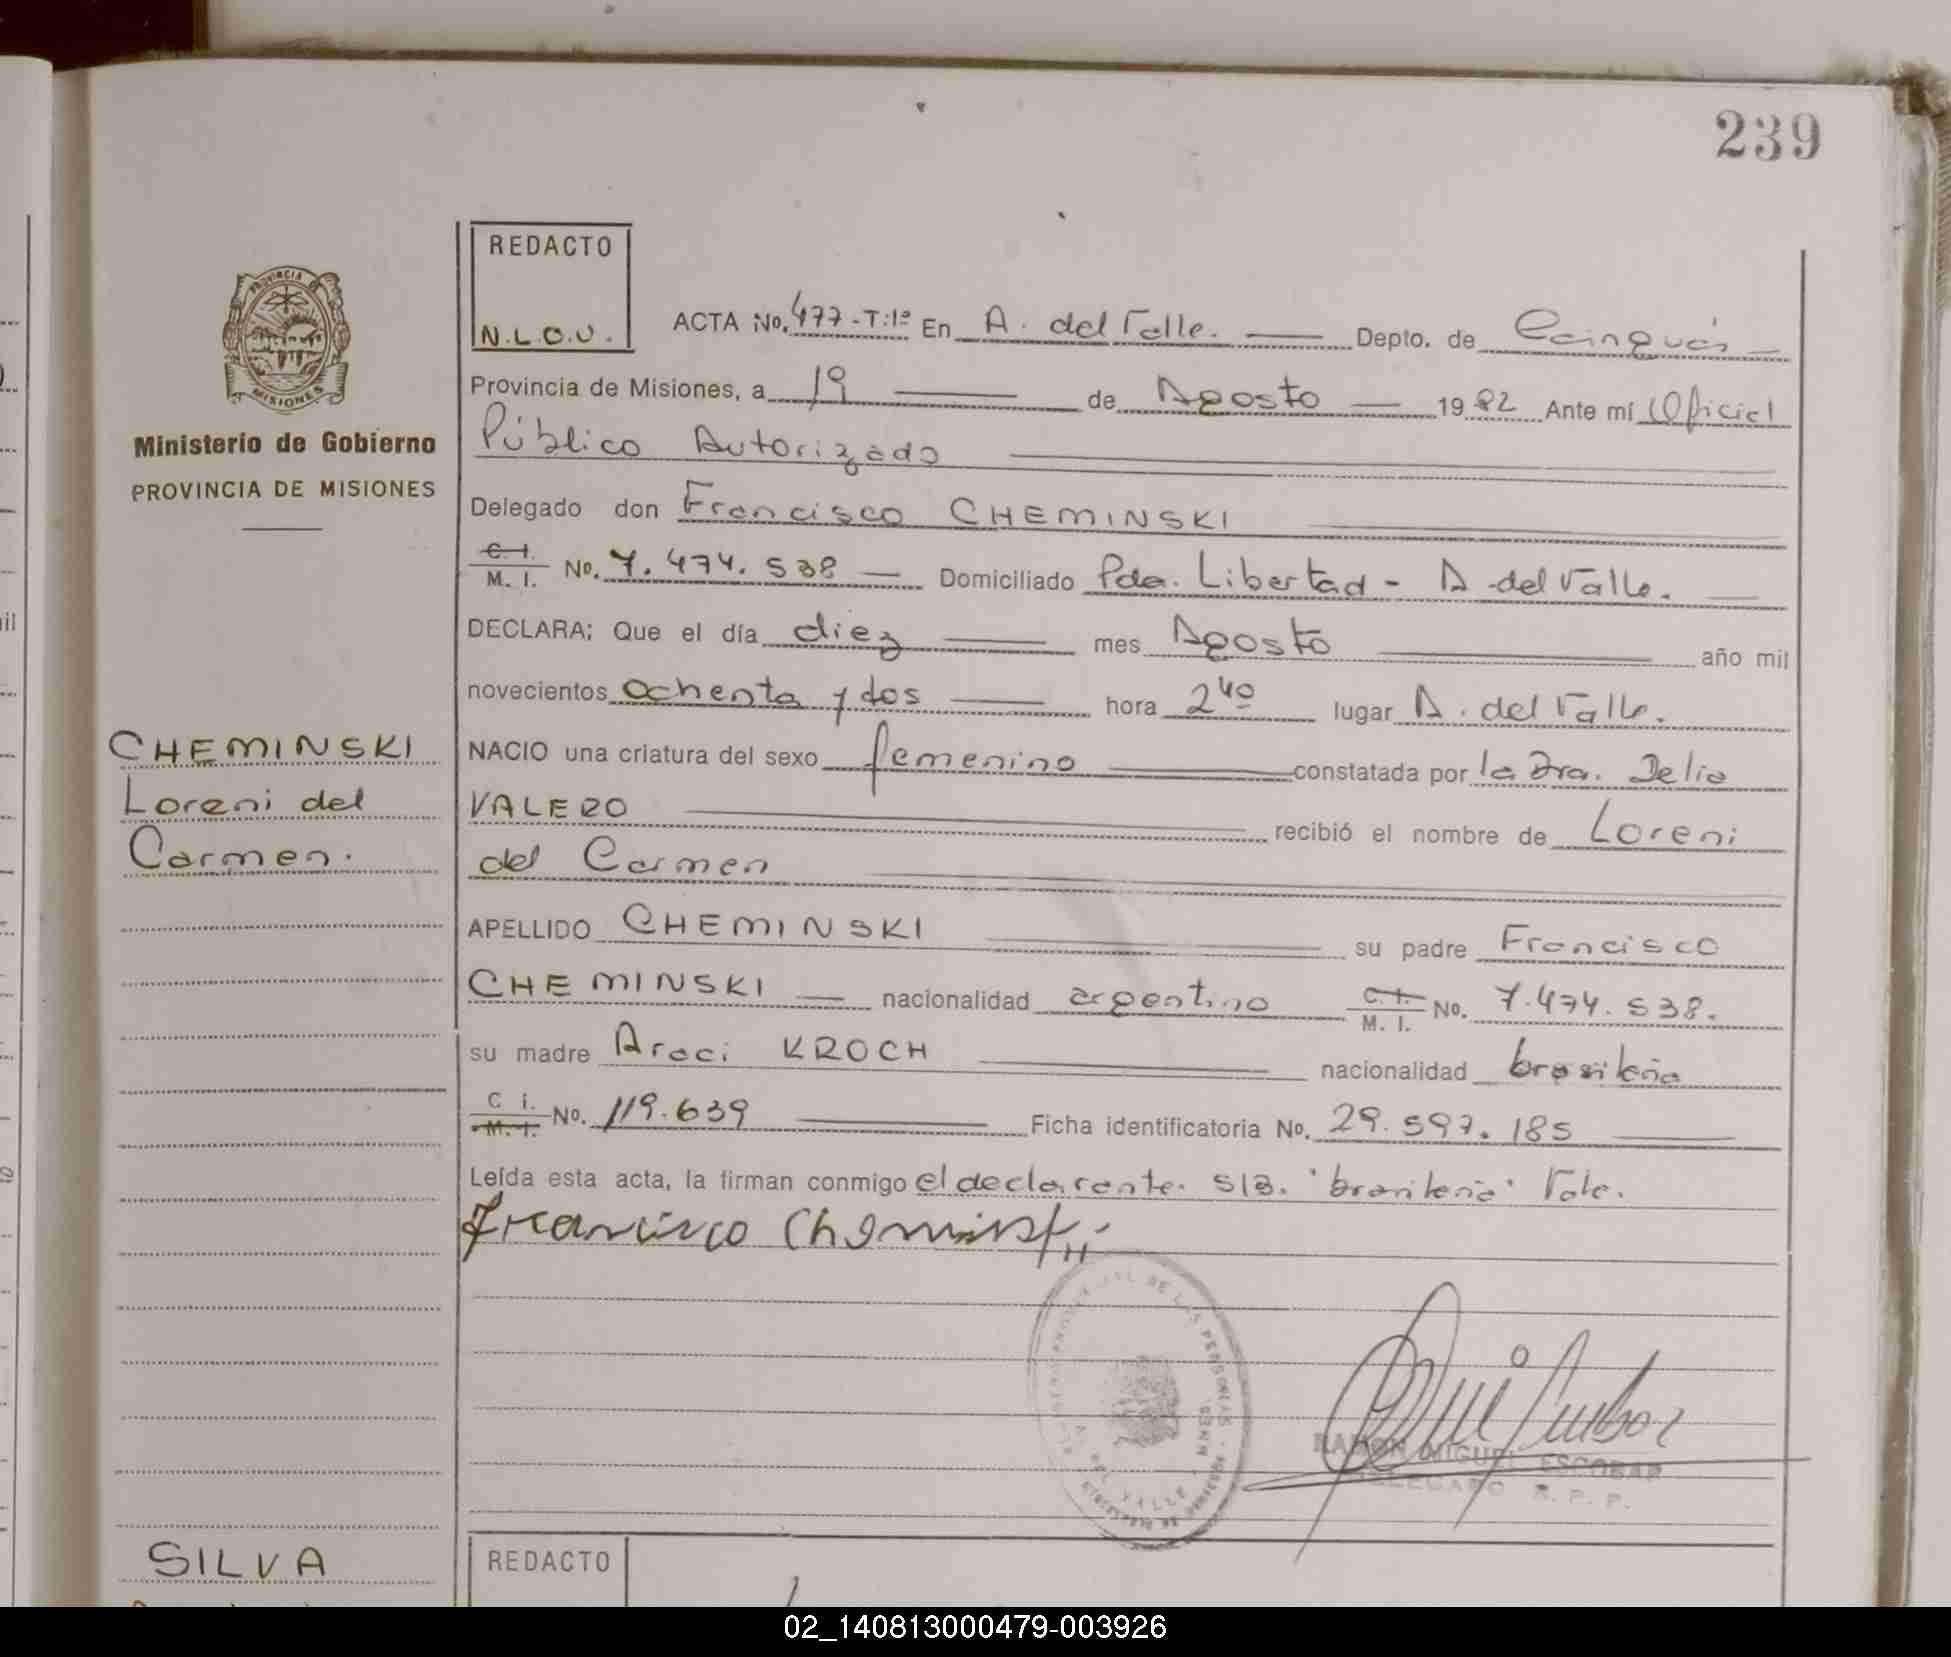 239
REDACTO
N.L.O.V.
PROVINCIA DE
MISIONES
Ministerio de Gobierno
PROVINCIA DE MISIONES
ACTA No. 477-T:1º En A. del Valle. Depto. de Cainguás
Provincia de Misiones, a 19 de Agosto 1982 Ante mí Oficial
Público Autorizado
Delegado don Francisco CHEMINSKI
C. I.
M. I. No. 7.474.538 Domiciliado Pda. Libertad - A. del Valle.
DECLARA: Que el día diez mes Agosto año mil
novecientos ochenta y dos hora 2⁴⁰ lugar A. del Valle.
CHEMINSKI
Loreni del
Carmen.
NACIO una criatura del sexo femenino constatada por la Dra. Delia
VALERO recibió el nombre de Loreni
del Carmen
APELLIDO CHEMINSKI su padre Francisco
CHEMINSKI nacionalidad argentino C. I. M. I. No. 7.474.538.
su madre Araci KROCH nacionalidad brasileña
C I.
M. I. No. 119.639 Ficha identificatoria No. 29.597.185
Leída esta acta, la firman conmigo el declarante. S/B. "brasileña" Vale.
Francisco Cheminski
DE LAS PERSONAS
A. DEL VALLE - MNES
RAMON MIGUEL ESCOBAR
DELEGADO R. P. P.
SILVA
REDACTO
02_140813000479-003926